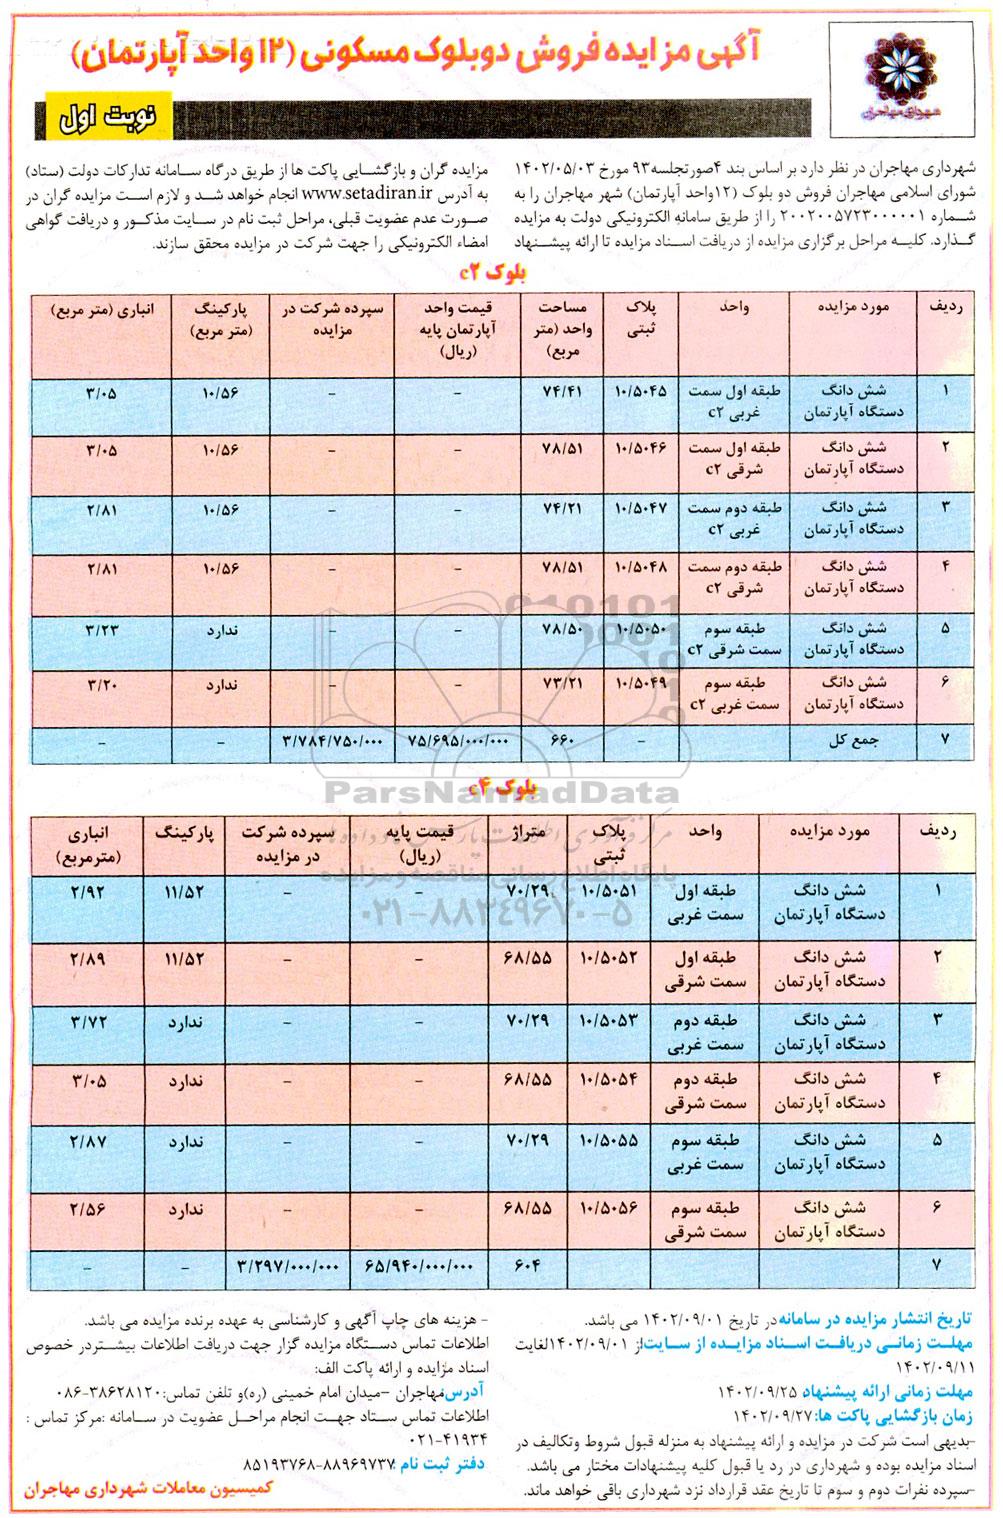 آگهی مزایده فروش دوبلوک مسکونی (۱۲ واحد آپارتمان)
شهرداری مهاجران
نوبت اول
شهرداری مهاجران در نظر دارد بر اساس بند ۴صورتجلسه۹۳ مورخ ۱۴۰۲/۰۵/۰۳
شورای اسلامی مهاجران فروش دو بلوک (۱۲واحد آپارتمان) شهر مهاجران را به
شماره ۲۰۰۲۰۰۵۷۲۳۰۰۰۰۰۱ را از طریق سامانه الکترونیکی دولت به مزایده
گذارد. کلیه مراحل برگزاری مزایده از دریافت اسناد مزایده تا ارائه پیشنهاد
مزایده گران و بازگشایی پاکت ها از طریق درگاه سامانه تدارکات دولت (ستاد)
به آدرس www.setadiran.ir انجام خواهد شد و لازم است مزایده گران در
صورت عدم عضویت قبلی، مراحل ثبت نام در سایت مذکور و دریافت گواهی
امضاء الکترونیکی را جهت شرکت در مزایده محقق سازند.
بلوک c۲
ردیف مورد مزایده واحد پلاک ثبتی مساحت واحد (متر مربع) قیمت واحد آپارتمان پایه (ریال) سپرده شرکت در مزایده پارکینگ (متر مربع) انباری (متر مربع)
۱ شش دانگ دستگاه آپارتمان طبقه اول سمت غربی c۲ ۱۰/۵۰۴۵ ۷۴/۴۱ – – ۱۰/۵۶ ۳/۰۵
۲ شش دانگ دستگاه آپارتمان طبقه اول سمت شرقی c۲ ۱۰/۵۰۴۶ ۷۸/۵۱ – – ۱۰/۵۶ ۳/۰۵
۳ شش دانگ دستگاه آپارتمان طبقه دوم سمت غربی c۲ ۱۰/۵۰۴۷ ۷۴/۲۱ – – ۱۰/۵۶ ۲/۸۱
۴ شش دانگ دستگاه آپارتمان طبقه دوم سمت شرقی c۲ ۱۰/۵۰۴۸ ۷۸/۵۱ – – ۱۰/۵۶ ۲/۸۱
۵ شش دانگ دستگاه آپارتمان طبقه سوم سمت شرقی c۲ ۱۰/۵۰۵۰ ۷۸/۵۰ – – ندارد ۳/۲۳
۶ شش دانگ دستگاه آپارتمان طبقه سوم سمت غربی c۲ ۱۰/۵۰۴۹ ۷۳/۲۱ – – ندارد ۳/۲۰
۷ جمع کل – ۶۶۰ ۷۵/۶۹۵/۰۰۰/۰۰۰ ۳/۷۸۴/۷۵۰/۰۰۰ – –
بلوک c۴
ParsNamadData
پایگاه اطلاع رسانی مناقصه و مزایده
۰۲۱-۸۸۳۴۹۶۷۰-۵
ردیف مورد مزایده واحد پلاک ثبتی متراژ قیمت پایه (ریال) سپرده شرکت در مزایده پارکینگ انباری (مترمربع)
۱ شش دانگ دستگاه آپارتمان طبقه اول سمت غربی ۱۰/۵۰۵۱ ۷۰/۲۹ – – ۱۱/۵۲ ۲/۹۲
۲ شش دانگ دستگاه آپارتمان طبقه اول سمت شرقی ۱۰/۵۰۵۲ ۶۸/۵۵ – – ۱۱/۵۲ ۲/۸۹
۳ شش دانگ دستگاه آپارتمان طبقه دوم سمت غربی ۱۰/۵۰۵۳ ۷۰/۲۹ – – ندارد ۳/۷۲
۴ شش دانگ دستگاه آپارتمان طبقه دوم سمت شرقی ۱۰/۵۰۵۴ ۶۸/۵۵ – – ندارد ۳/۰۵
۵ شش دانگ دستگاه آپارتمان طبقه سوم سمت غربی ۱۰/۵۰۵۵ ۷۰/۲۹ – – ندارد ۲/۸۷
۶ شش دانگ دستگاه آپارتمان طبقه سوم سمت شرقی ۱۰/۵۰۵۶ ۶۸/۵۵ – – ندارد ۲/۵۶
۷ ۶۰۴ ۶۵/۹۴۰/۰۰۰/۰۰۰ ۳/۲۹۷/۰۰۰/۰۰۰ – –
تاریخ انتشار مزایده در سامانه در تاریخ ۱۴۰۲/۰۹/۰۱ می باشد.
مهلت زمانی دریافت اسناد مزایده از سایت:از ۱۴۰۲/۰۹/۰۱لغایت
۱۴۰۲/۰۹/۱۱
مهلت زمانی ارائه پیشنهاد: ۱۴۰۲/۰۹/۲۵
زمان بازگشایی پاکت ها: ۱۴۰۲/۰۹/۲۷
-بدیهی است شرکت در مزایده و ارائه پیشنهاد به منزله قبول شروط وتکالیف در
اسناد مزایده بوده و شهرداری در رد یا قبول کلیه پیشنهادات مختار می باشد.
-سپرده نفرات دوم و سوم تا تاریخ عقد قرارداد نزد شهرداری باقی خواهد ماند.
- هزینه های چاپ آگهی و کارشناسی به عهده برنده مزایده می باشد.
اطلاعات تماس دستگاه مزایده گزار جهت دریافت اطلاعات بیشتردر خصوص
اسناد مزایده و ارائه پاکت الف:
آدرس:مهاجران –میدان امام خمینی (ره)و تلفن تماس:۳۸۶۲۸۱۲۰-۰۸۶
اطلاعات تماس ستاد جهت انجام مراحل عضویت در سامانه :مرکز تماس :
۰۲۱-۴۱۹۳۴
دفتر ثبت نام :۸۸۹۶۹۷۳۷-۸۵۱۹۳۷۶۸
کمیسیون معاملات شهرداری مهاجران